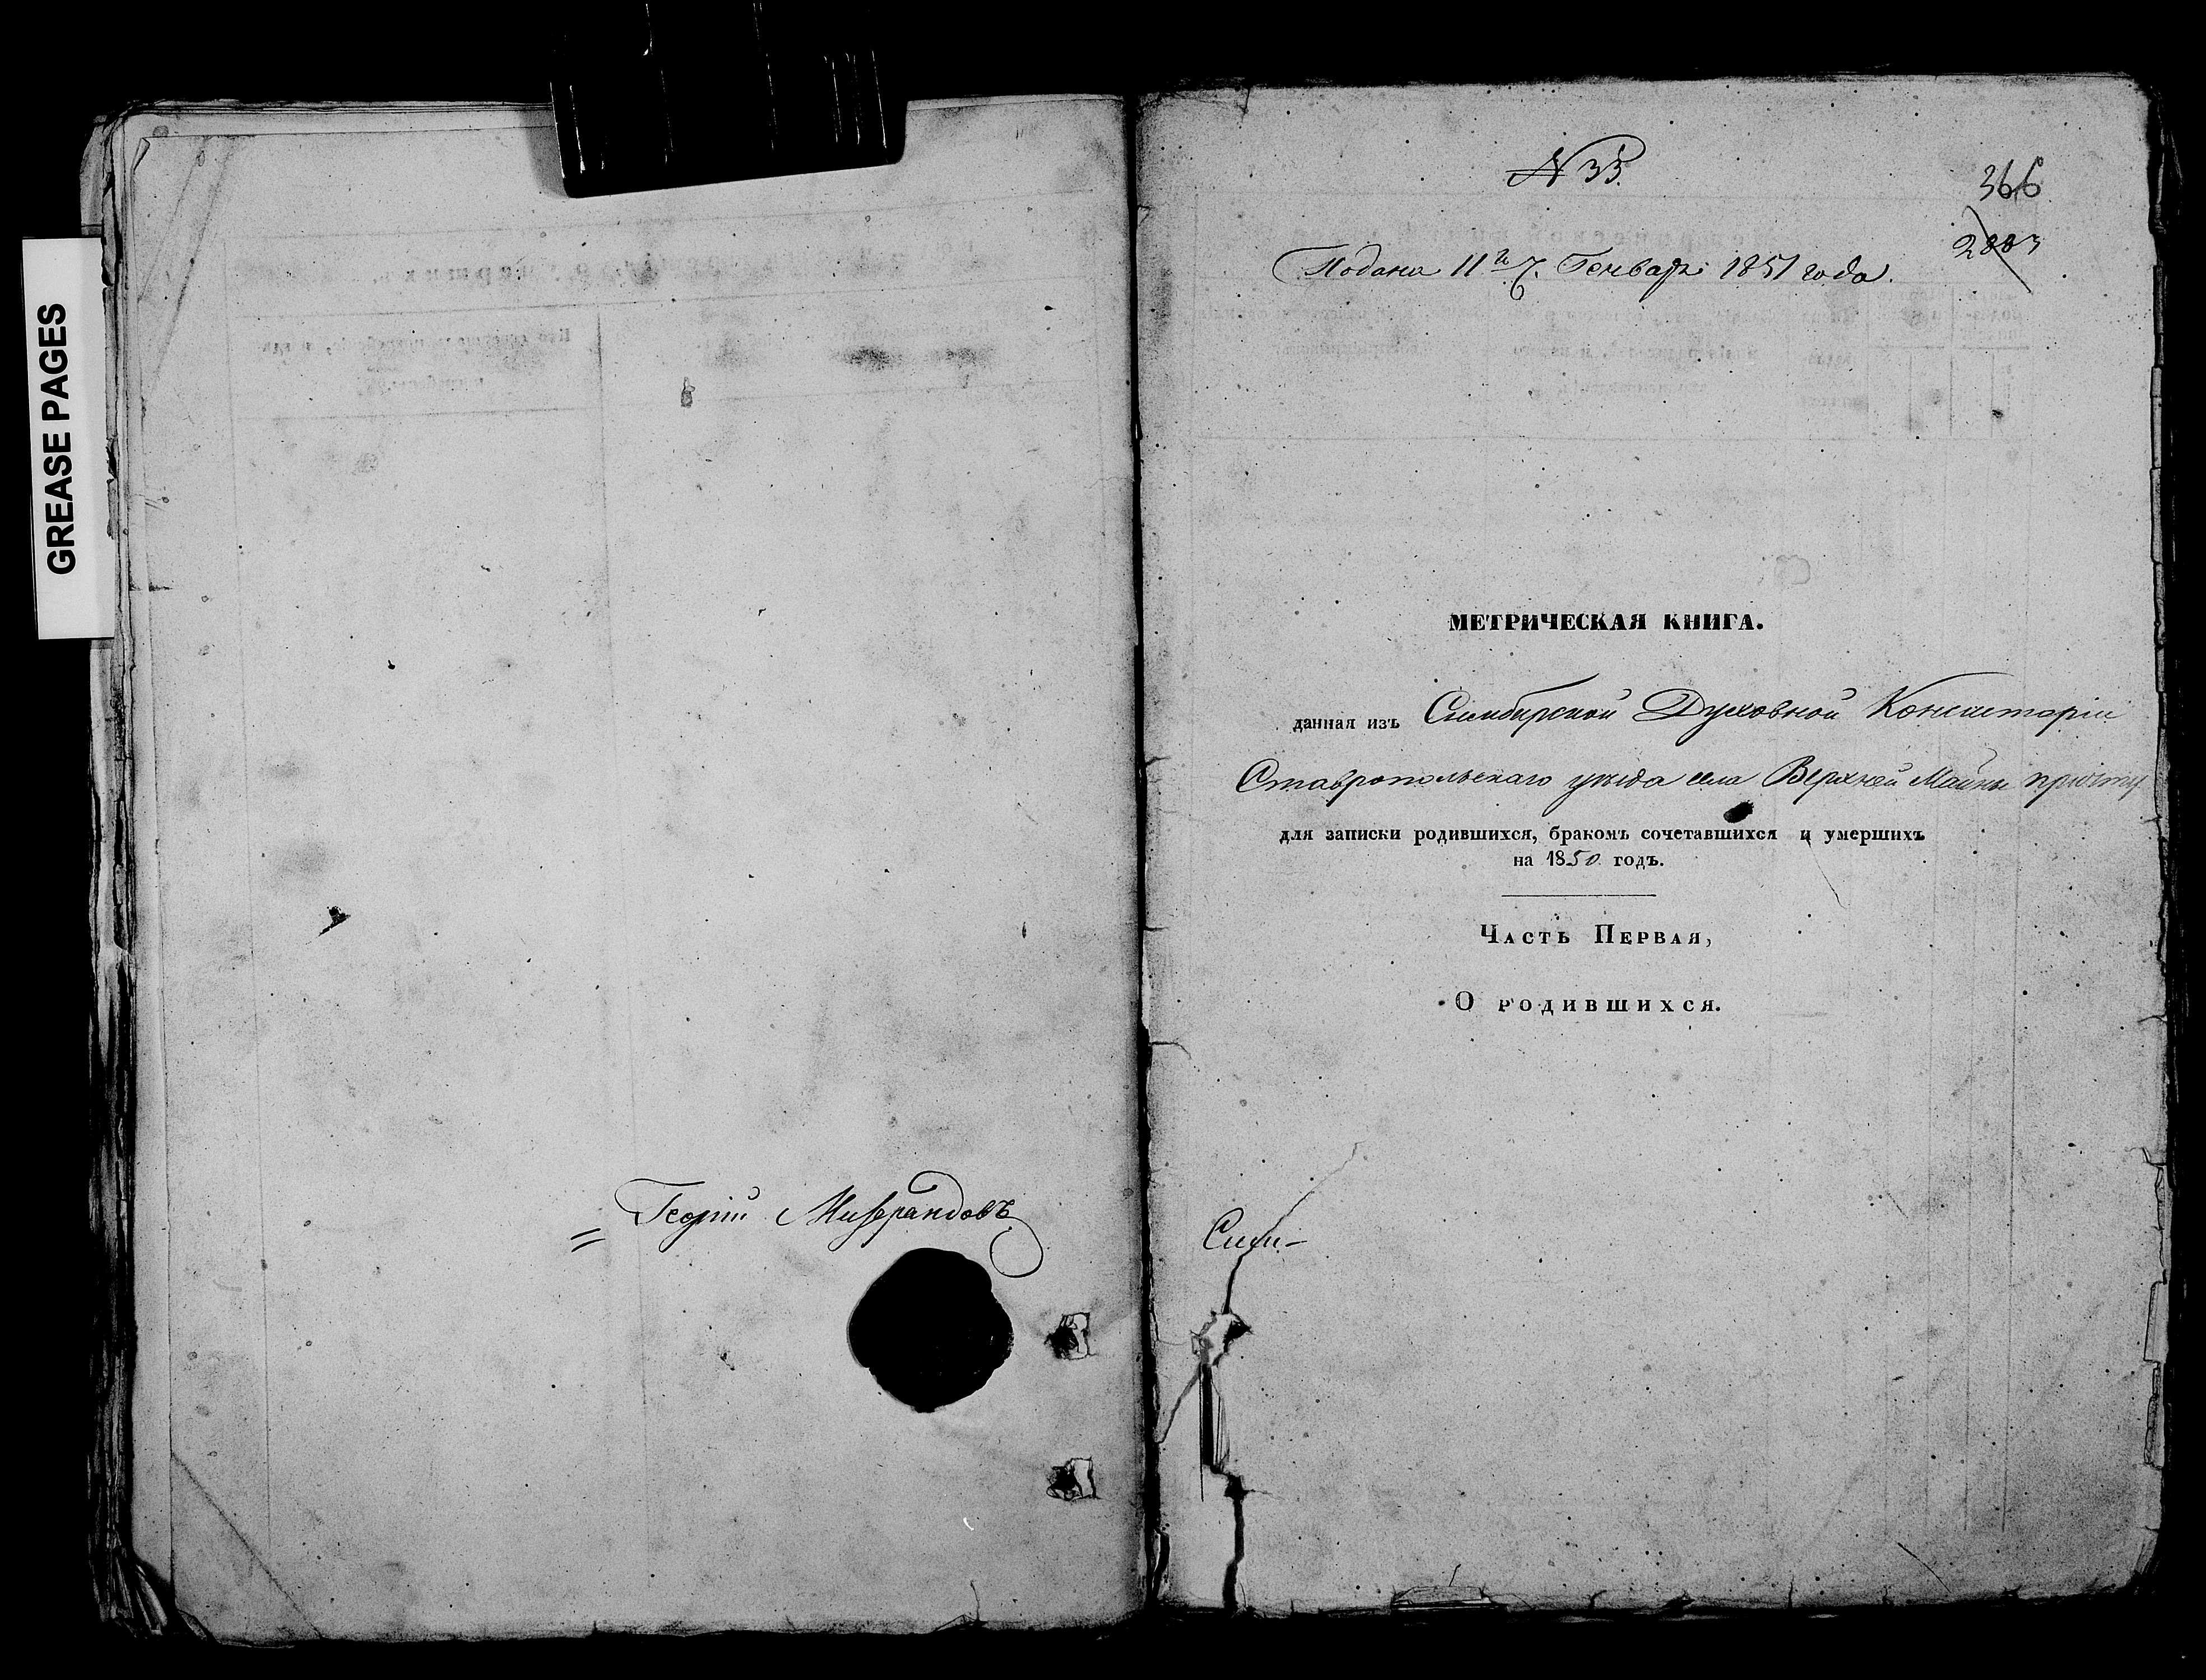 GREASE PAGES
Георгій
N 35.
366
Подана 11го Генваря 1851 года.
МЕТРИЧЕСКАЯ КНИГА.
данная изъ Симбирской Духовной Консисторіи
Ставропольскаго уѣзда села Верхней Майны причту
для записки родившихся, бракомъ сочетавшихся и умершихъ
на 1850 годъ.
Часть Первая,
О родившихся.
Сим-